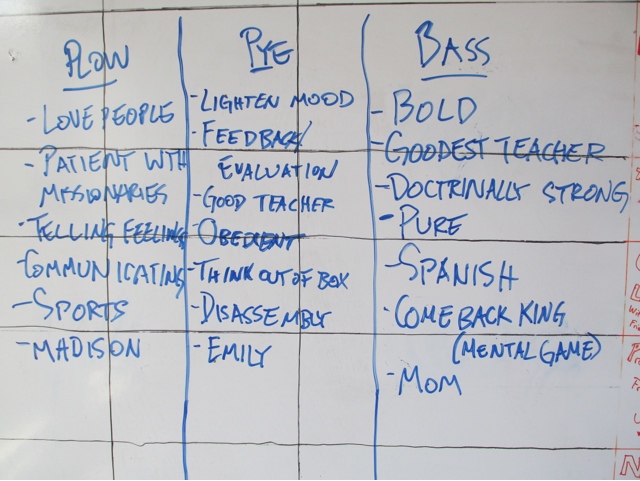 PLOW
- LOVE PEOPLE
- PATIENT WITH
MISSIONARIES
- TELLING FEELINGS
- COMMUNICATING
- SPORTS
- MADISON
PYE
- LIGHTEN MOOD
- FEEDBACK/
EVALUATION
- GOOD TEACHER
OBEDIENT
- THINK OUT OF BOX
- DISASSEMBLY
- EMILY
BASS
- BOLD
- GOODEST TEACHER
- DOCTRINALLY STRONG
- PURE
- SPANISH
- COME BACK KING
(MENTAL GAME)
- MOM
N